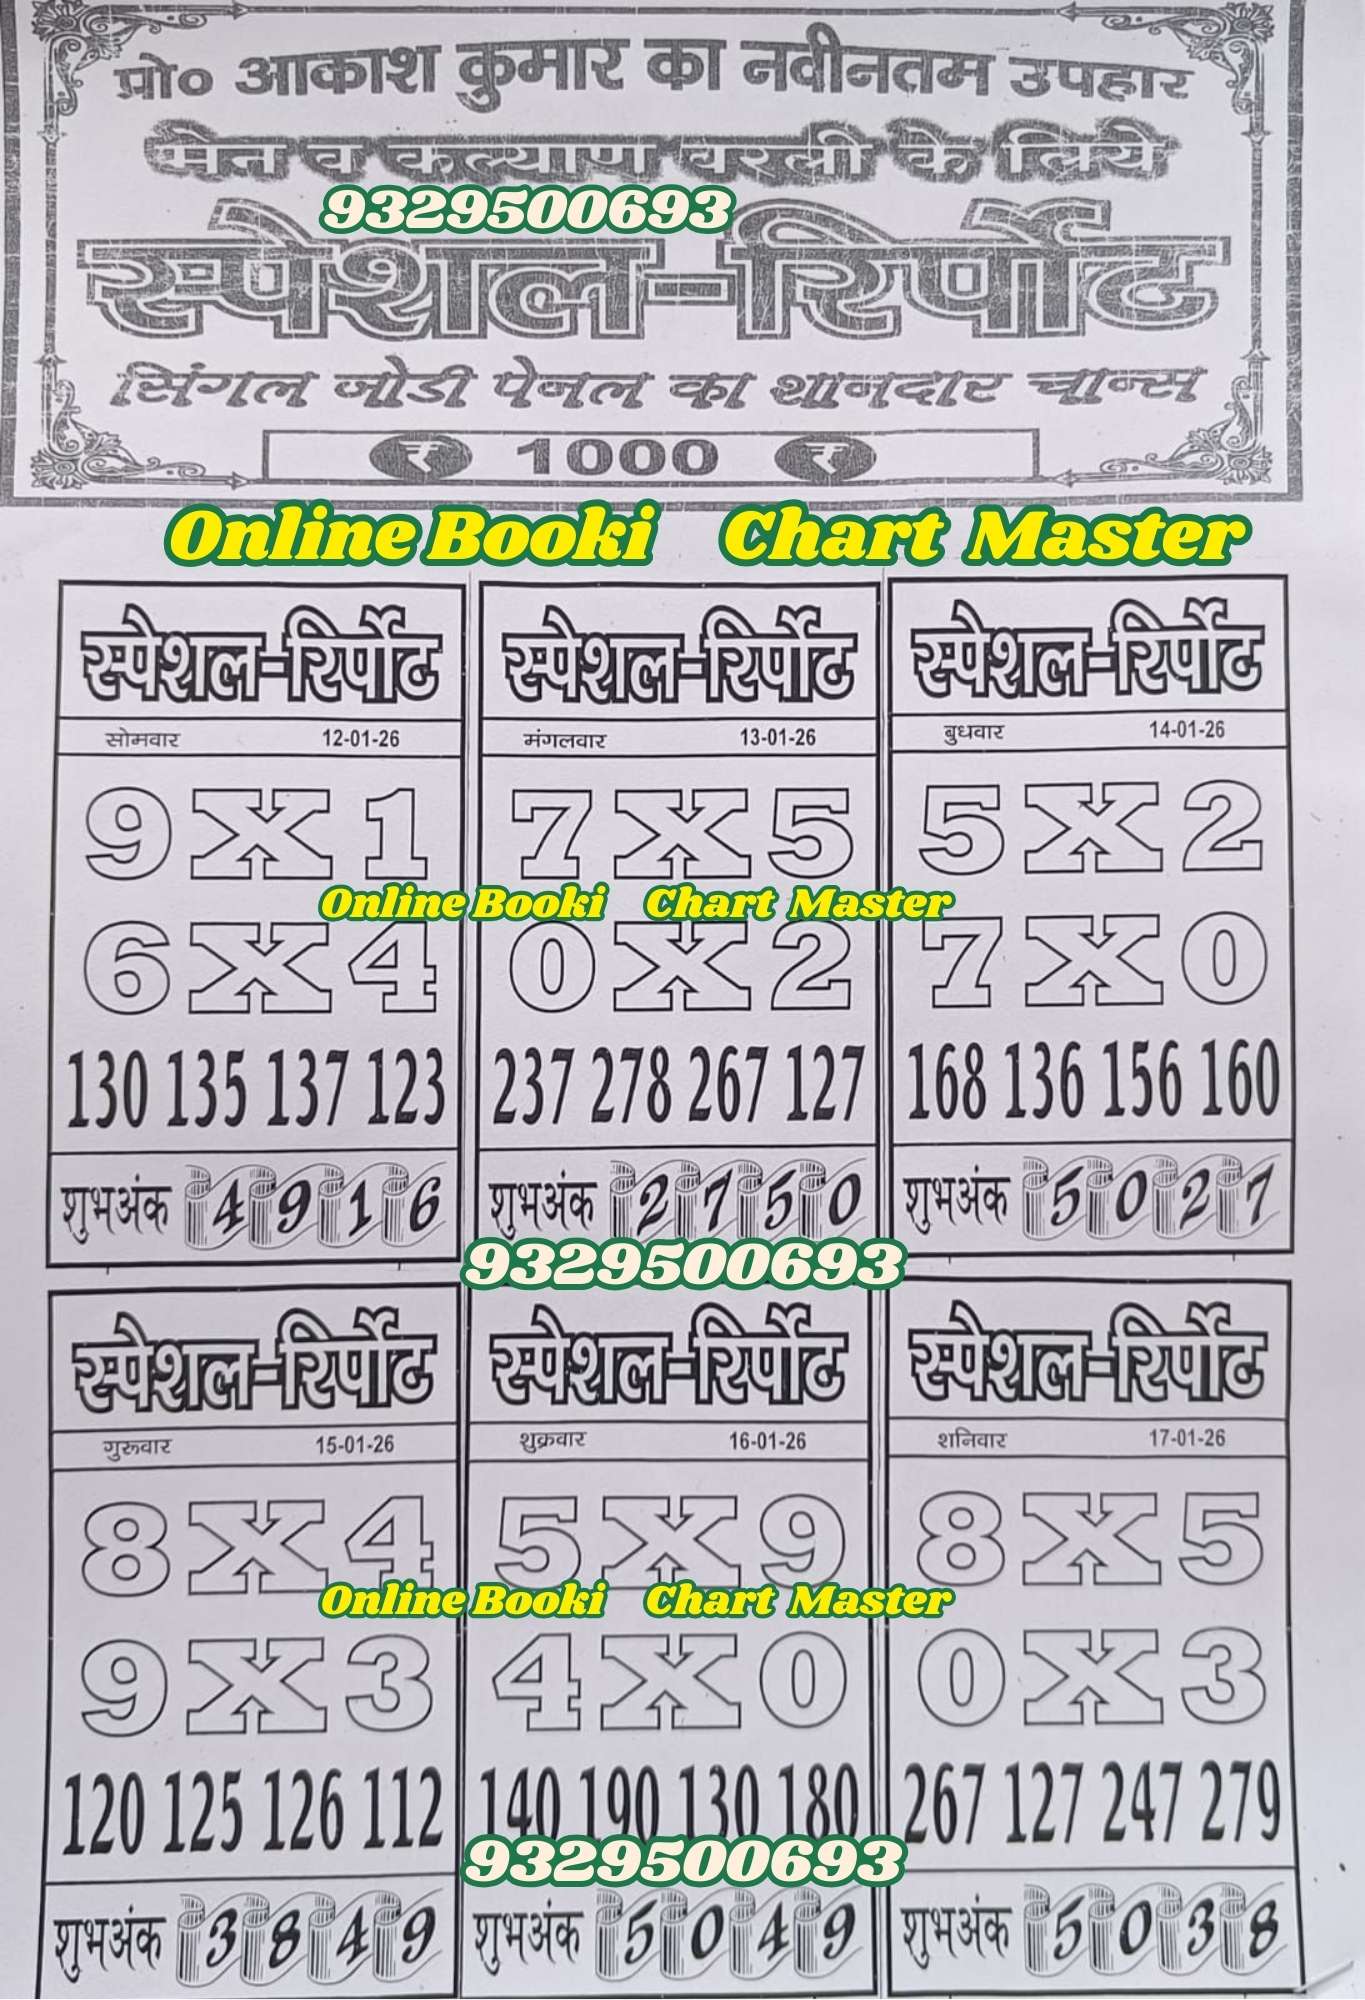 प्रो० आकाश कुमार का नवीनतम उपहार
मेन व कल्याण वरली के लिये
9329500693
स्पेशल-रिर्पोट
सिंगल जोडी पेनल का शानदार चान्स
₹ 1000 ₹
Online Booki Chart Master
स्पेशल-रिर्पोट
सोमवार 12-01-26
9 X 1
6 X 4
130 135 137 123
शुभअंक 4 9 1 6
स्पेशल-रिर्पोट
मंगलवार 13-01-26
7 X 5
0 X 2
237 278 267 127
शुभअंक 2 7 5 0
स्पेशल-रिर्पोट
बुधवार 14-01-26
5 X 2
7 X 0
168 136 156 160
शुभअंक 5 0 2 7
Online Booki Chart Master
9329500693
स्पेशल-रिर्पोट
गुरुवार 15-01-26
8 X 4
9 X 3
120 125 126 112
शुभअंक 3 8 4 9
स्पेशल-रिर्पोट
शुक्रवार 16-01-26
5 X 9
4 X 0
140 190 130 180
शुभअंक 5 0 4 9
स्पेशल-रिर्पोट
शनिवार 17-01-26
8 X 5
0 X 3
267 127 247 279
शुभअंक 5 0 3 8
Online Booki Chart Master
9329500693